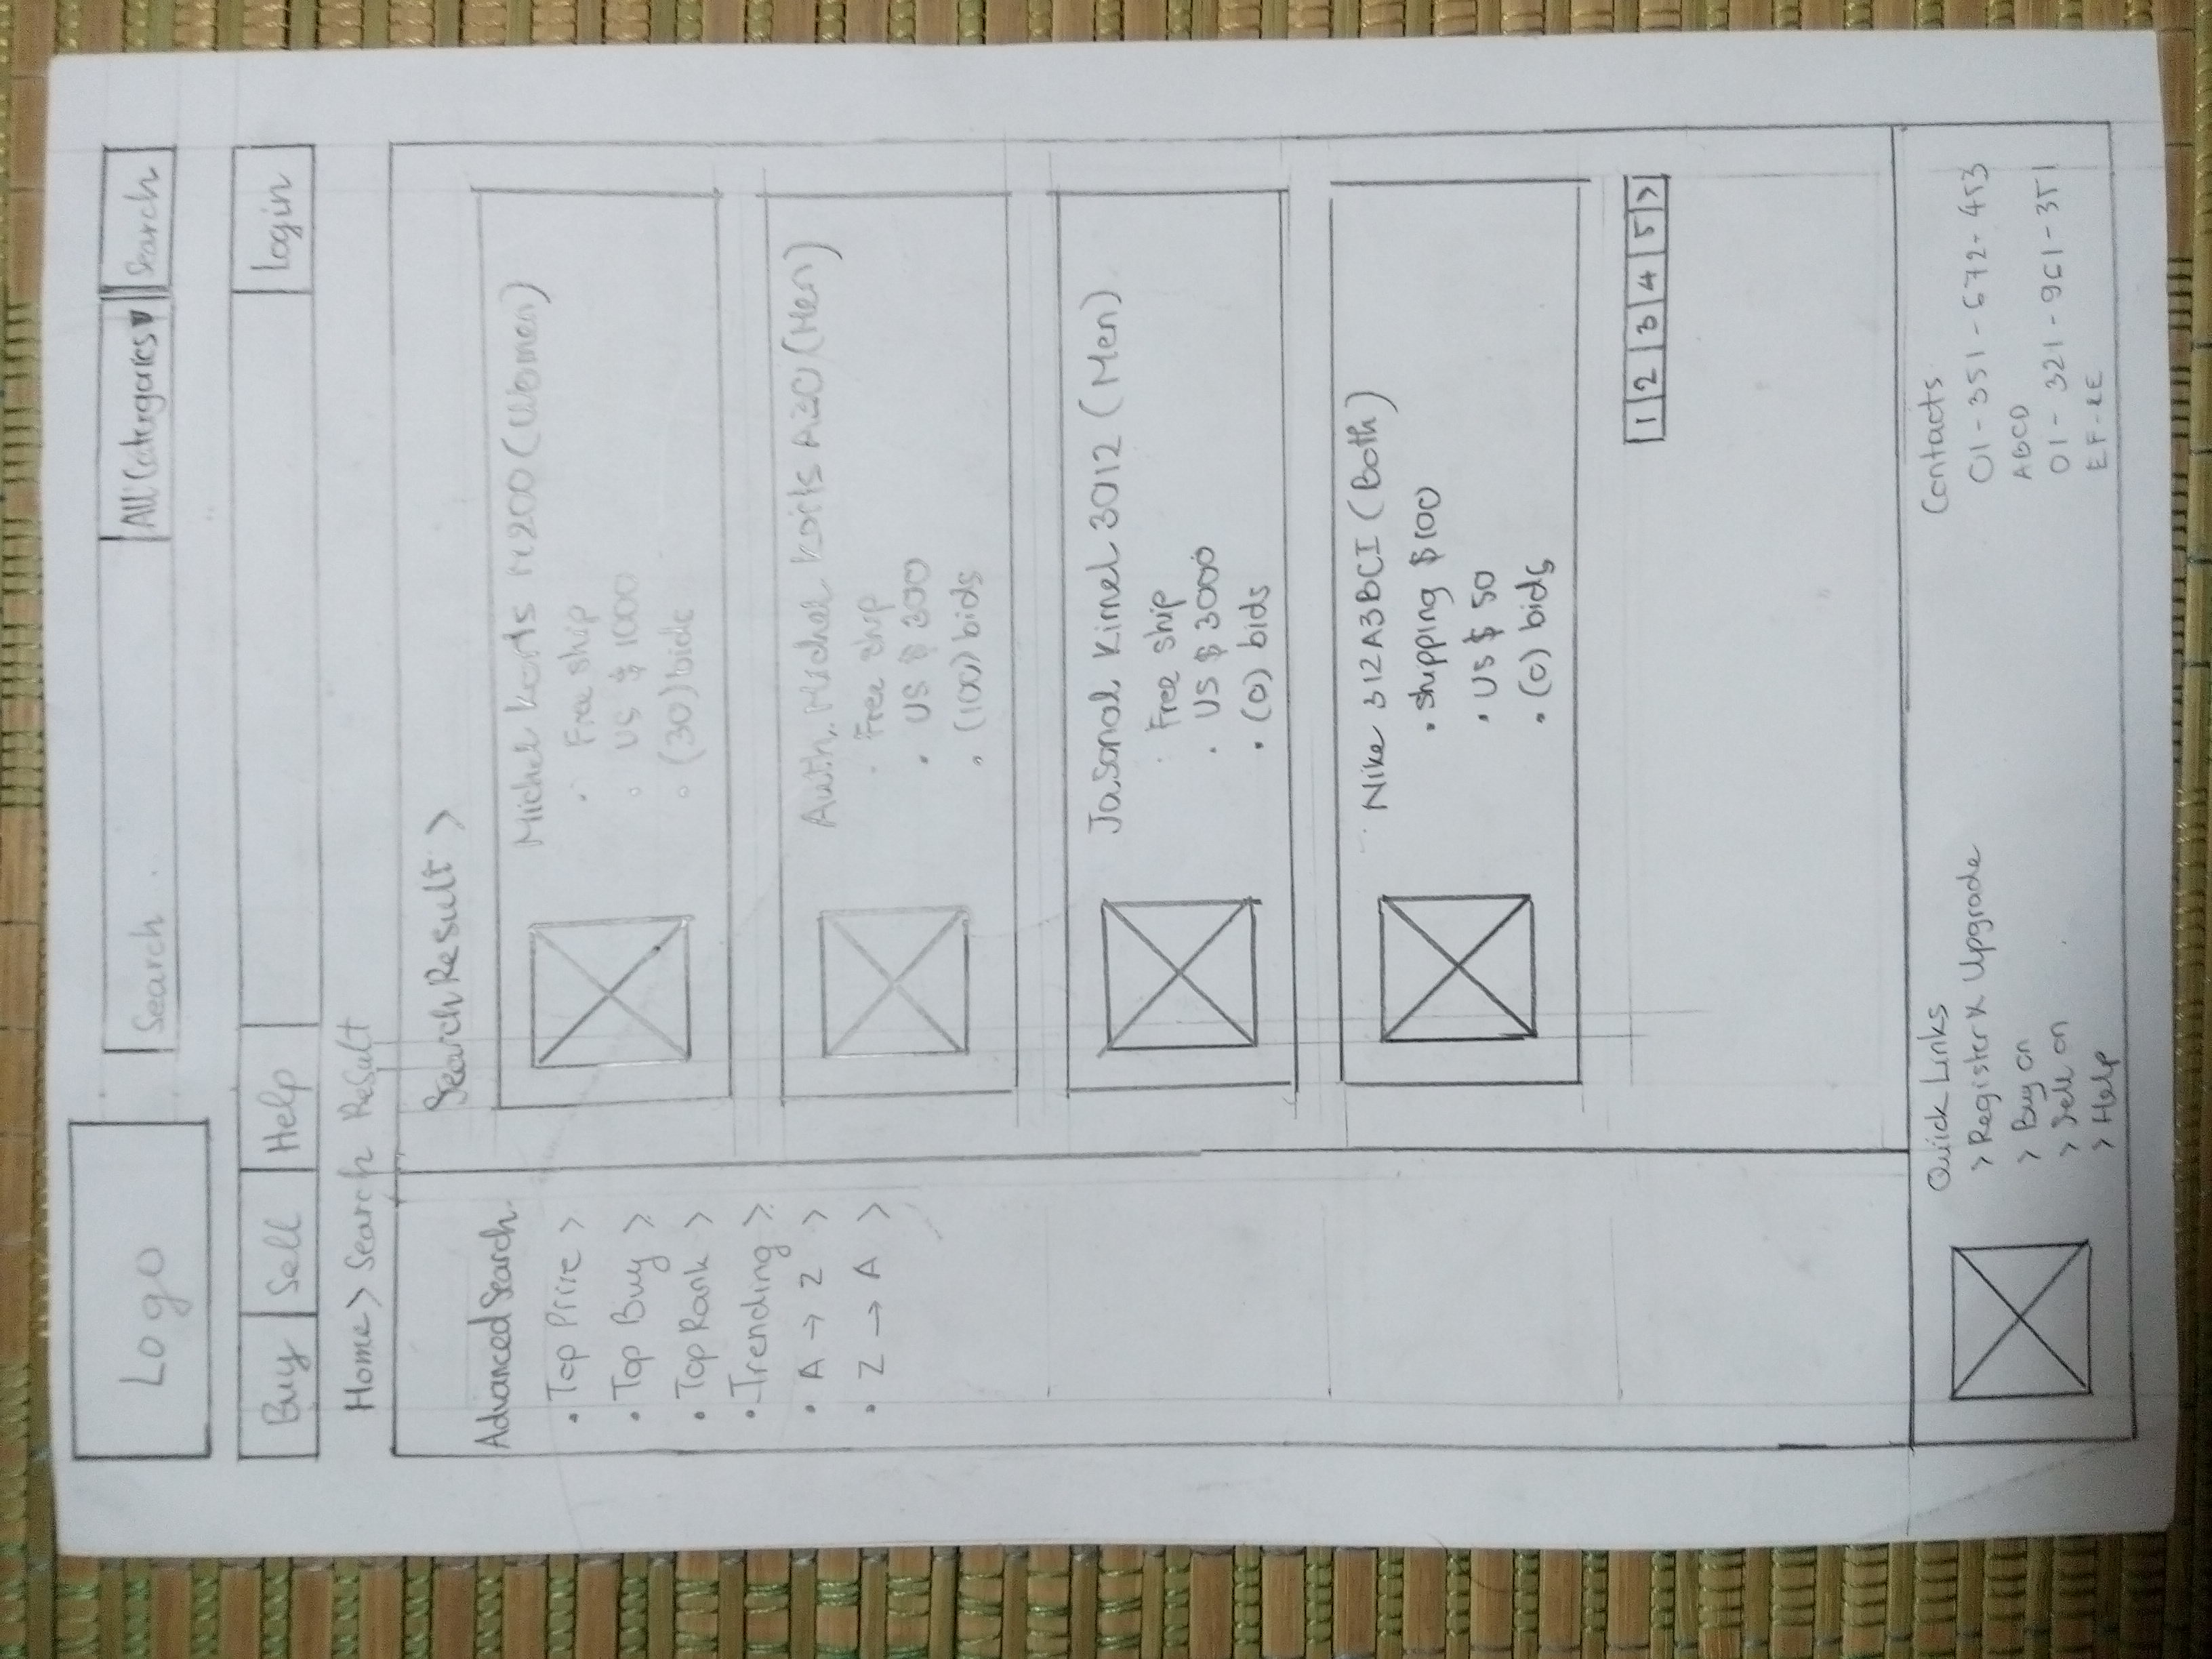 Logo
Search
All Catergories ▼
Search
Buy
Sell
Help
Login
Home > Search Result
Advanced Search
• Top Price >
• Top Buy >
• Top Rank >
• Trending >
• A → Z >
• Z → A >
Search Result >
Michel Korls M200 (Women)
• Free ship
• US $ 1000
• (30) bids
Auth. Michel Korls A30 (Men)
• Free ship
• US $ 300
• (100) bids
Jasonal Kimel 3012 (Men)
• Free ship
• US $ 3000
• (0) bids
Nike 312A3BCI (Both)
• Shipping $100
• US $ 50
• (0) bids
1 2 3 4 5 >
Quick Links
> Register & Upgrade
> Buy on
> Sell on
> Help
Contacts
01-351-672-453
ABCD
01-321-961-351